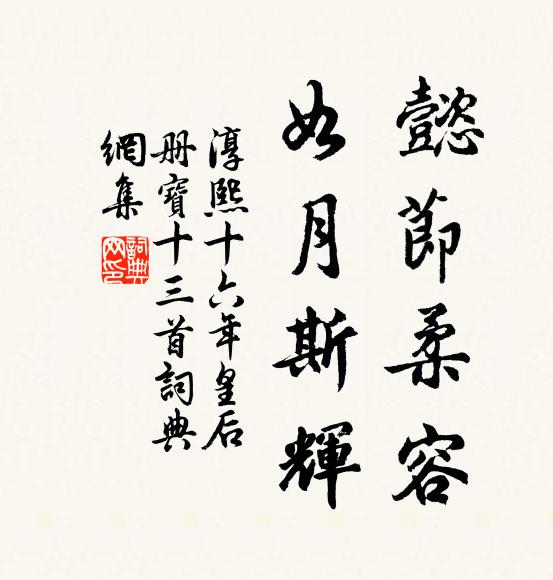 懿節柔容
如月斯輝
淳熙十六年皇后
册寶十三首詞典
網集
詞典
网印